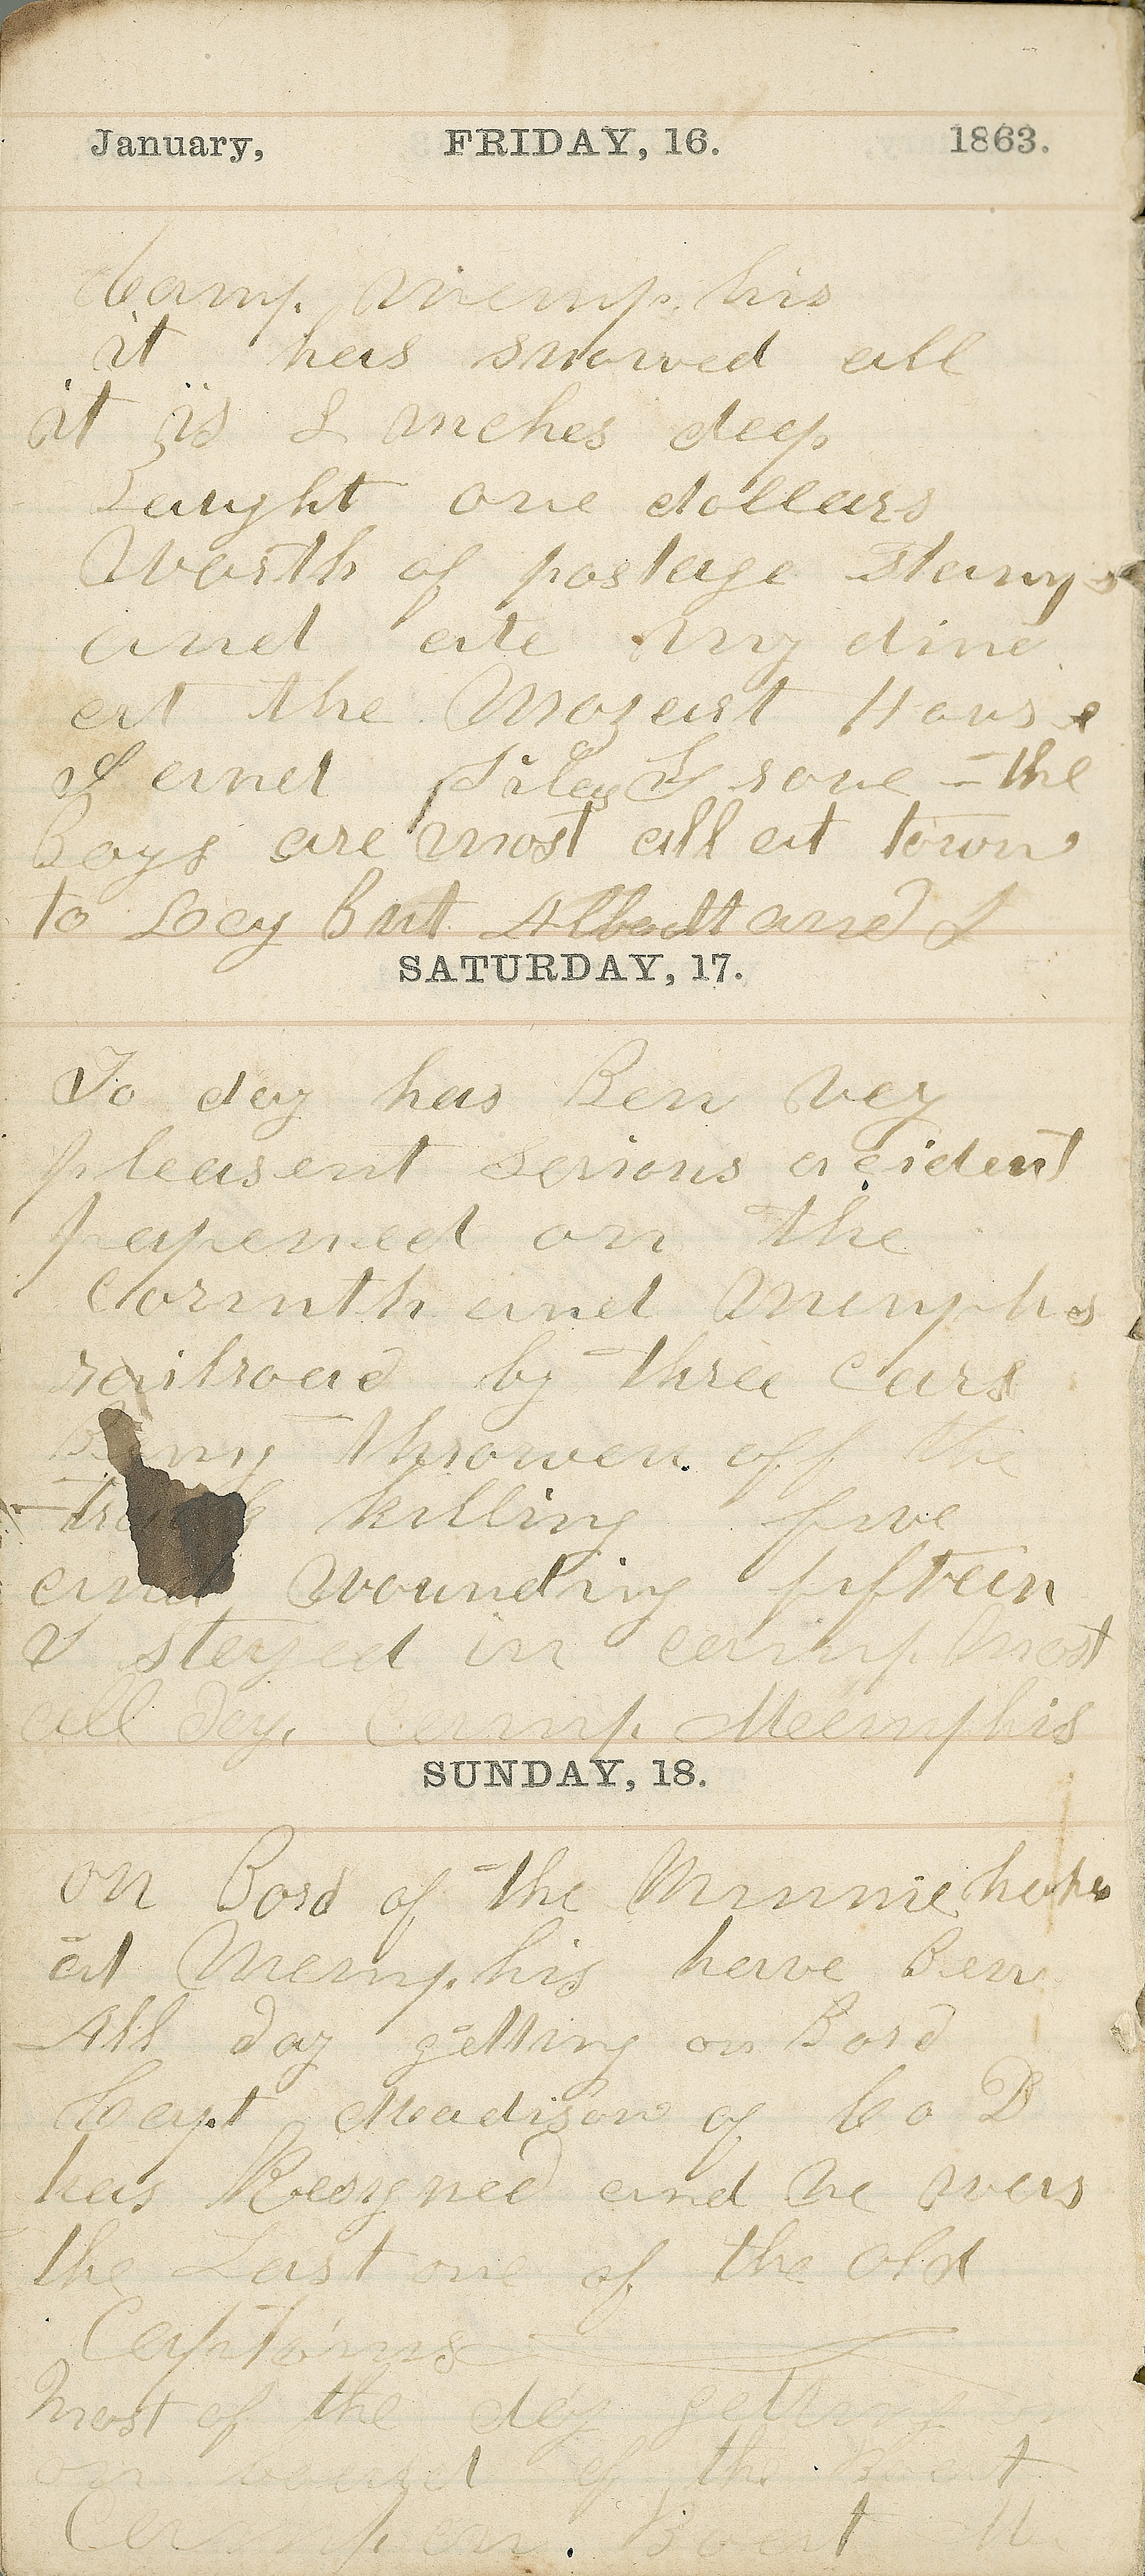 January, FRIDAY, 16. 1863.
Camp Memphis
it has snowed all
it is 2 inches deep
Baught one dollars
Worth of postage stamps
and ate my dine
at the Mozart House
I and the
Boys are most all at town
to Day But and I
SATURDAY, 17.
To day has Ben vey
pleasent serious acident
hapened on the
Corinth and Memphis
railroad by three Cars
Being throwen off the
track killing five
and wounding fiftein
I stayed in camp Most
all day. Camp Meemphis
SUNDAY, 18.
on Bord of the Minnie
at Memphis have Ben
All day getting on Bord
Capt Madison of Co B
has Resigned and he was
the Last one of the old
Captains
Most of the day getting on
on board of the Boat
Camp on. Boat